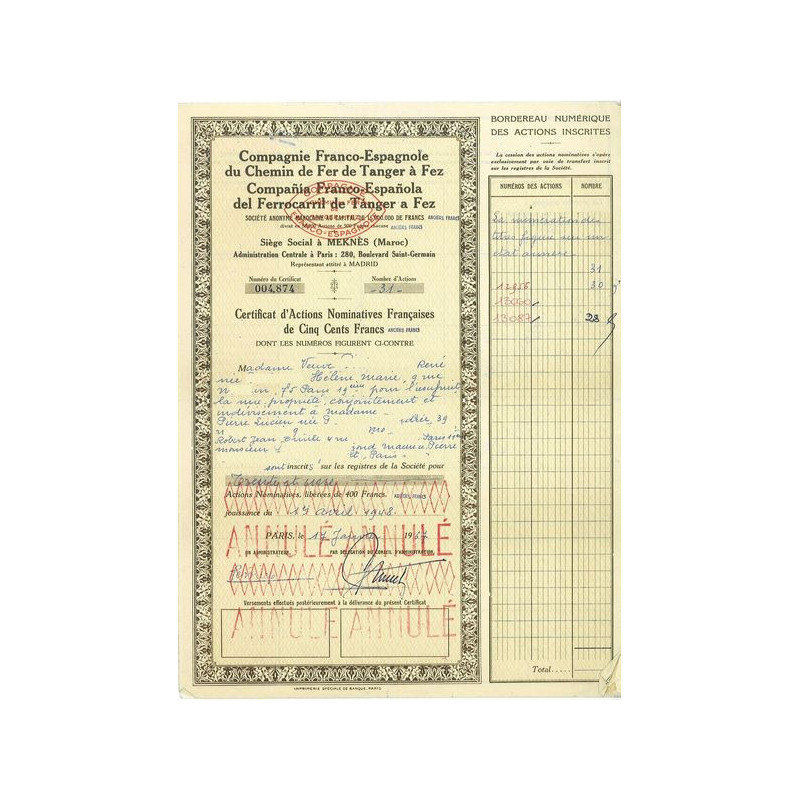 Compagnie Franco-Espagnole
du Chemin de Fer de Tanger à Fez
Compañia Franco-Española
del Ferrocarril de Tánger a Fez
SOCIÉTÉ ANONYME MAROCAINE AU CAPITAL DE 15.000.000 DE FRANCS ANCIENS FRANCS
divisé en Actions de 500 Francs chacune ANCIENS FRANCS
COMPAGNIE
FRANCO-ESPAGNOLE
Siège Social à MEKNÈS (Maroc)
Administration Centrale à Paris : 280, Boulevard Saint-Germain
Représentant attitré à MADRID
Numéro du Certificat Nombre d'Actions
004.874 -31-
Certificat d'Actions Nominatives Françaises
de Cinq Cents Francs ANCIENS FRANCS
DONT LES NUMÉROS FIGURENT CI-CONTRE
Madame Veuve René
née Hélène Marie, 9 rue
75 Paris 19ème pour l'usufruit
la nue propriété conjointement et
indivisément à Madame
Pierre Lucien née P. 39
Robert Jean Emile 4 rue Paris
monsieur Maurice Pierre
et, Paris
sont inscrits sur les registres de la Société pour
Trente et une
Actions Nominatives, libérées de 400 Francs. ANCIENS FRANCS
jouissance du 17 avril 1948.
PARIS, le 17 Janvier 1967
ANNULÉ ANNULÉ
UN ADMINISTRATEUR, PAR DÉLÉGATION DU CONSEIL D'ADMINISTRATION,
Versements effectués postérieurement à la délivrance du présent Certificat
ANNULÉ ANNULÉ
IMPRIMERIE SPÉCIALE DE BANQUE, PARIS
BORDEREAU NUMÉRIQUE
DES ACTIONS INSCRITES
La cession des actions nominatives s'opère
exclusivement par voie de transfert inscrit
sur les registres de la Société.
NUMÉROS DES ACTIONS NOMBRE
La numération des
titres figure sur un
état annexe
31
12956 30
13060
13087 28
Total.....